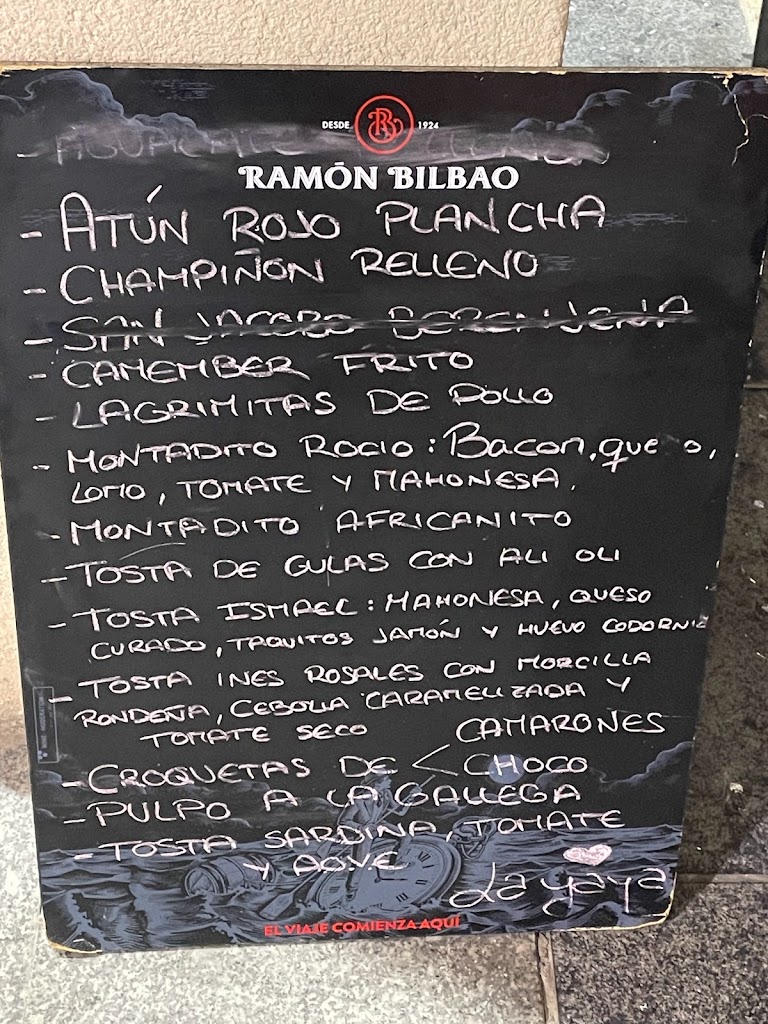 DESDE 1924
RAMÓN BILBAO
- ATÚN ROJO PLANCHA
- CHAMPIÑÓN RELLENO
- SAN JACOBO BERENJENA
- CAMEMBER FRITO
- LAGRIMITAS DE POLLO
- MONTADITO ROCIO: Bacon, que o,
LOMO, TOMATE Y MAHONESA.
- MONTADITO AFRICANITO
- TOSTA DE GULAS CON ALI OLI
- TOSTA ISMAEL: MAHONESA, QUESO
CURADO, TAQUITOS JAMÓN Y HUEVO CODORNIZ
- TOSTA INES ROSALES CON MORCILLA
RONDEÑA, CEBOLLA CARAMELIZADA Y
TOMATE SECO
CAMARONES
- CROQUETAS DE < CHOCO
- PULPO A LA GALLEGA
- TOSTA SARDINA, TOMATE
Y AOVE
La yaya
EL VIAJE COMIENZA AQUÍ